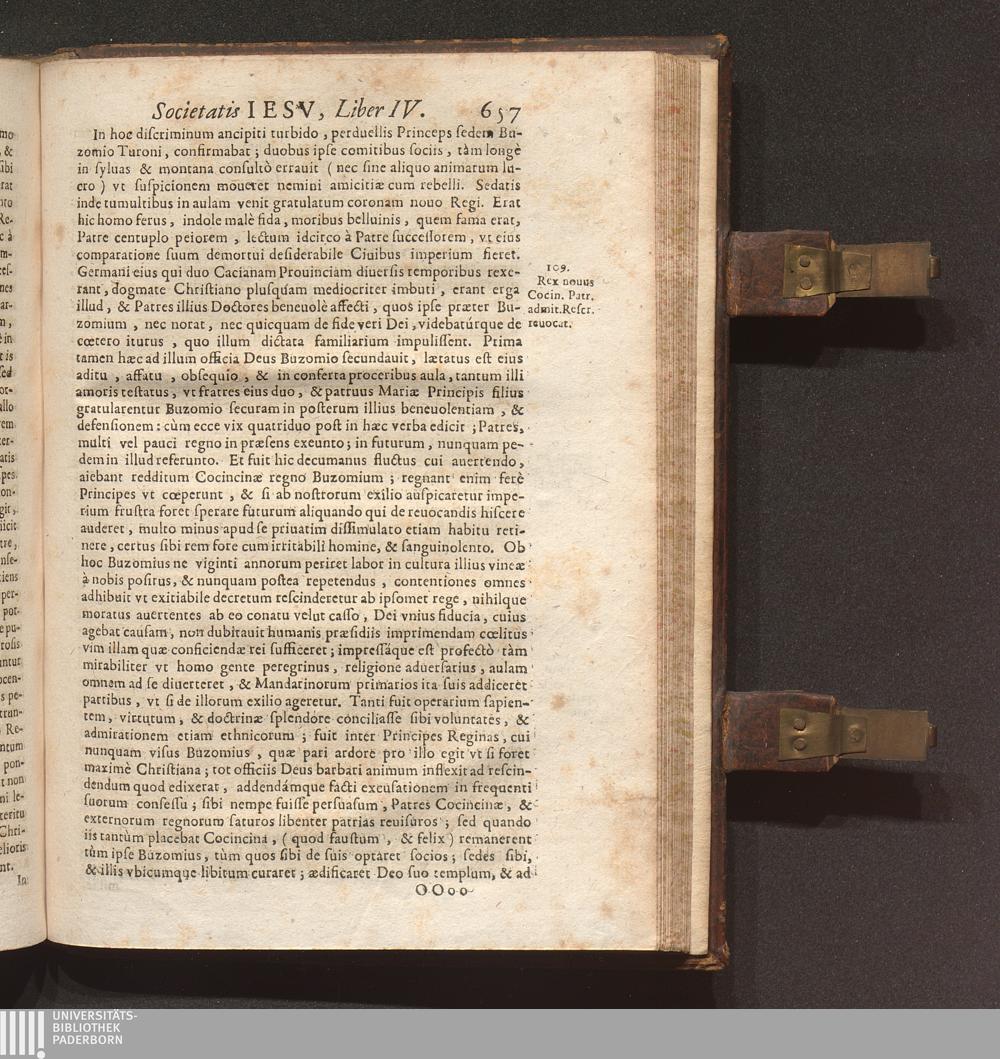 Societatis IESV, Liber IV. 657
In hoc discriminum ancipiti turbido, perduellis Princeps sedem Bu-
zomio Turoni, confirmabat; duobus ipse comitibus sociis, tàm longè
in syluas & montana consultò errauit (nec sine aliquo animarum lu-
cro) vt suspicionem moueret nemini amicitiæ cum rebelli. Sedatis
inde tumultibus in aulam venit gratulatum coronam nouo Regi. Erat
hic homo ferus, indole malè fida, moribus belluinis, quem fama erat,
Patre centuplo peiorem, lectum idcirco à Patre successorem, vt eius
comparatione suum demortui desiderabile Ciuibus imperium fieret.
Germani eius qui duo Cacianam Prouinciam diuersis temporibus rexe-
rant, dogmate Christiano plusquam mediocriter imbuti, erant erga
illud, & Patres illius Doctores beneuolè affecti, quos ipse præter Bu-
zomium, nec norat, nec quicquam de fide veri Dei, videbatúrque de
cœtero iturus, quo illum dictata familiarium impulissent. Prima
tamen hæc ad illum officia Deus Buzomio secundauit, lætatus est eius
aditu, affatu, obsequio, & in conferta proceribus aula, tantum illi
amoris testatus, vt fratres eius duo, & patruus Mariæ Principis filius
gratularentur Buzomio securam in posterum illius beneuolentiam, &
defensionem: cùm ecce vix quatriduo post in hæc verba edicit; Patres,
multi vel pauci regno in præsens exeunto; in futurum, nunquam pe-
dem in illud referunto. Et fuit hic decumanus fluctus cui auertendo,
aiebant redditum Cocincinæ regno Buzomium; regnant enim ferè
Principes vt cœperunt, & si ab nostrorum exilio auspicaretur impe-
rium frustra foret sperare futurum aliquando qui de reuocandis hiscere
auderet, multo minus apud se priuatim dissimulato etiam habitu reti-
nere, certus sibi rem fore cum irritabili homine, & sanguinolento. Ob
hoc Buzomius ne viginti annorum periret labor in cultura illius vineæ
à nobis positus, & nunquam postea repetendus, contentiones omnes
adhibuit vt exitiabile decretum rescinderetur ab ipsomet rege, nihilque
moratus auertentes ab eo conatu velut casso, Dei vnius fiducia, cuius
agebat causam, non dubitauit humanis præsidiis imprimendam cœlitus
vim illam quæ conficiendæ rei sufficeret; impressáque est profectò tàm
mirabiliter vt homo gente peregrinus, religione aduersarius, aulam
omnem ad se diuerteret, & Mandarinorum primarios ita suis addiceret
partibus, vt si de illorum exilio ageretur. Tanti fuit operarium sapien-
tem, virtutum, & doctrinæ splendore conciliasse sibi voluntates, &
admirationem etiam ethnicorum; fuit inter Principes Reginas, cui
nunquam visus Buzomius, quæ pari ardore pro illo egit vt si foret
maximè Christiana; tot officiis Deus barbari animum inflexit ad rescin-
dendum quod edixerat, addendámque facti excusationem in frequenti
suorum consessu; sibi nempe fuisse persuasum, Patres Cocincinæ, &
externorum regnorum saturos libenter patrias reuisuros; sed quando
iis tantùm placebat Cocincina, (quod faustum, & felix) remanerent
tùm ipse Buzomius, tùm quos sibi de suis optaret socios; sedes sibi,
& illis vbicumque libitum curaret; ædificaret Deo suo templum, & ad
OOoo
109.
Rex nouus
Cocin. Patr.
admit. Rescr.
reuocat.
mo
, &
sibi
rat
nto
Re-
c à
m-
ces-
nes
ar-
m,
è in
t is
sed
ot-
allo
rem
ter-
atis
spes
on-
git,
iicit
tre,
nse-
tiens
per-
pot-
e pu-
rosis
untur
ocen-
s pe-
trun-
Re-
ntum
pon-
t non
ni le-
teritu
Chri-
eliotis
nt.
In
UNIVERSITÄTS-
BIBLIOTHEK
PADERBORN